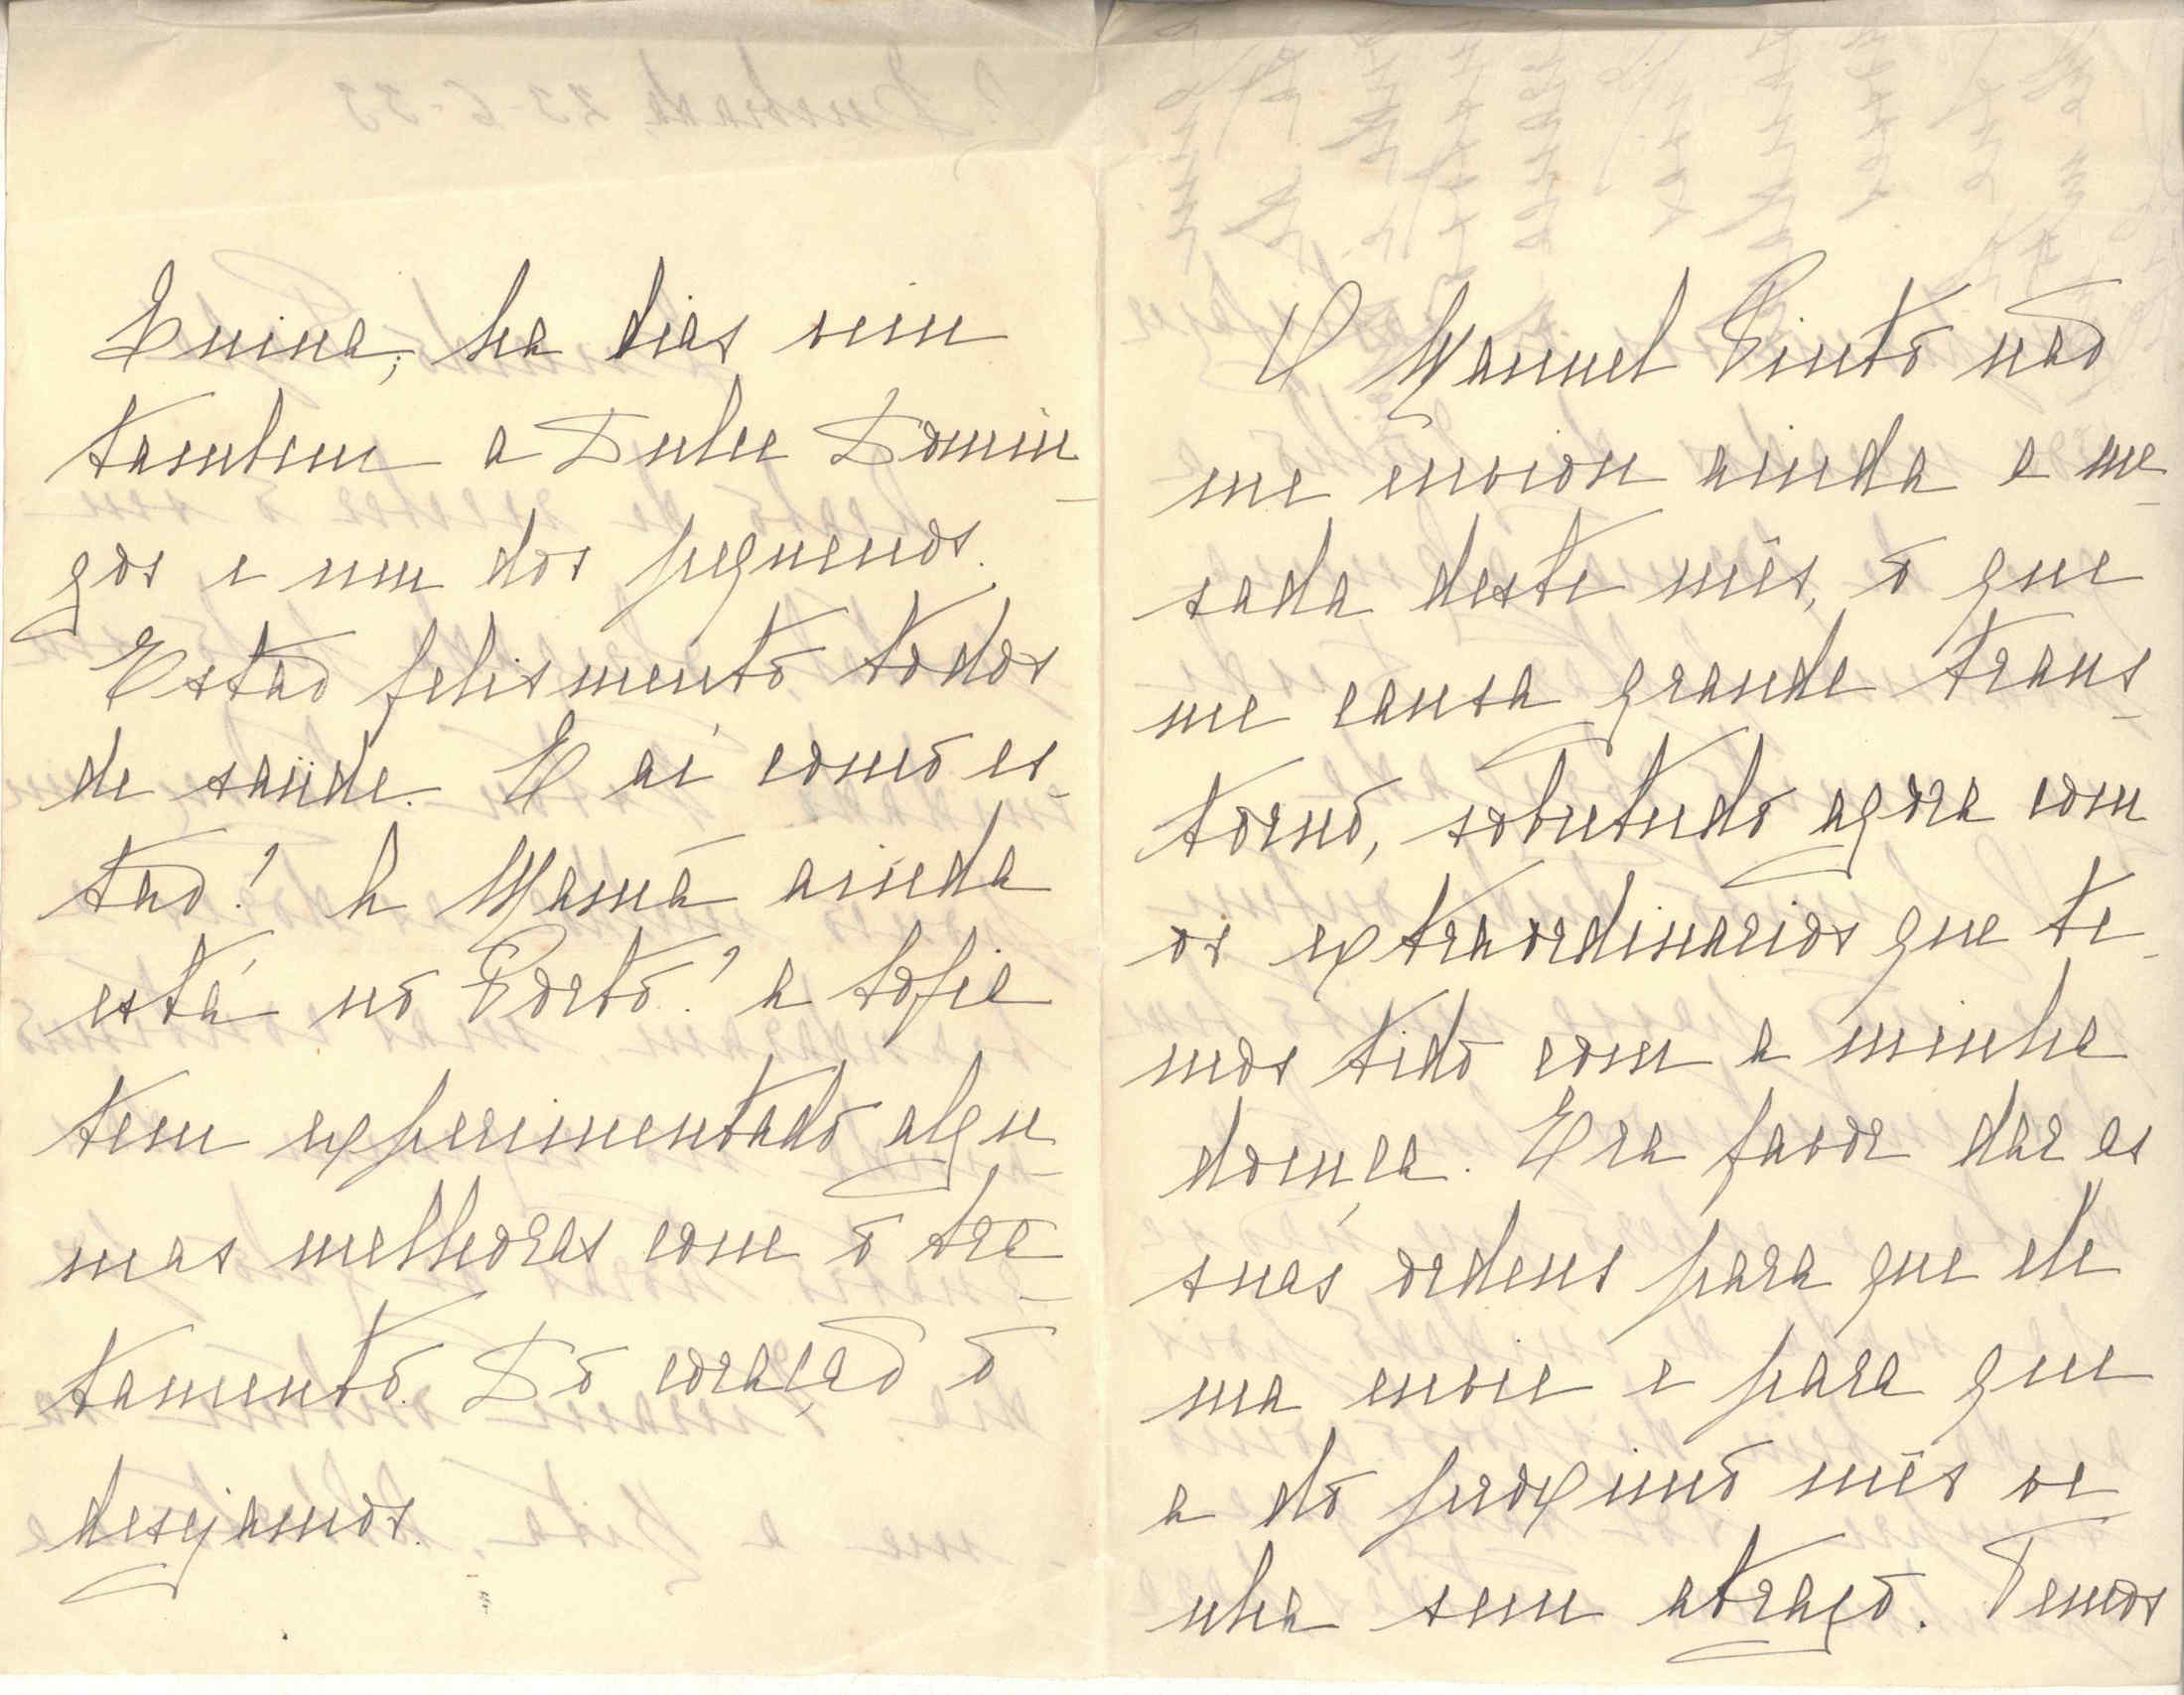 Enina, ha dias vem
tambem a Dulce Domin-
gos e um dos pequenos.
Estão felismente todos
de saüde. E aí como es-
tão? A Mamã ainda
está no Porto? a Sofia
tem experimentado algu-
mas melhoras com o tra-
tamento. Do coração o
desejamos.
O Manuel Pinto não
me enviou ainda a me-
sada deste mês, o que
me causa grande trans-
torno, sobretudo agora com
os extraordinarios que te-
mos tido com a minha
doença. Era favor dar as
suas ordens para que ele
ma envie e para que
a do proximo mês ve-
nha sem atraso. Temos